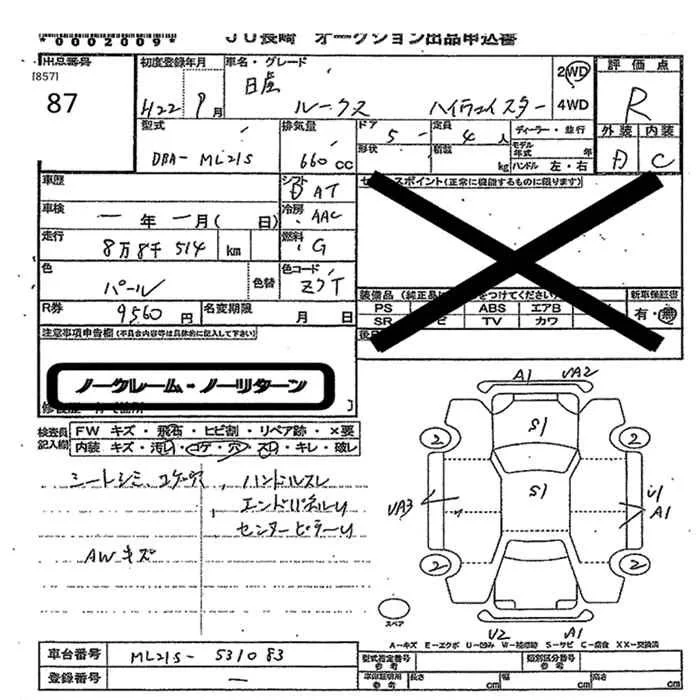 *0002009*
JU長崎 オークション出品申込書
出品番号
[857]
87
初度登録年月
H22 9月
車名・グレード
日産 ルークス ハイウェイスター
2WD
4WD
評価点
R
外装 内装
D C
型式
DBA-ML21S
排気量
660cc
ドア
5
定員
4人
形状
積載
kg
ディーラー・並行
モデル年式 年
ハンドル 左・右
車歴
車検
一年一月(日)
走行
8万8千514 km
色
パール
色替
R券
9560円
名変期限
月 日
シフト
DAT
冷房
AAC
燃料
G
色コード
Z7T
セールスポイント(正常に機能するものに限ります)
装備品(純正品に をつけてください)
PS ABS エアB
SR ビ TV カワ
新車保証書
有・無
後
注意事項申告欄(不具合内容等は具体的に記入して下さい)
ノークレーム・ノーリターン
検査員記入欄
FW キズ・飛石・ヒビ割・リペア跡・×要
内装 キズ・汚れ・コゲ・穴・スレ・キレ・破レ
シートシミ、コゲ穴、ハンドルスレ
エンドパネルU
センターピラーU
AWキズ
A1 UA2
S1
2 2
S1
UA3
U1
A1
2 2
スペア
U2 A1
A-キズ E-エクボ U-凹み W-補修跡 S-サビ C-腐食 XX-交換済
車台番号
ML21S-531083
登録番号
一
型式指定番号
参考
類別区分番号
参考
車庫証明用
参考
長さ cm
幅 cm
高さ cm